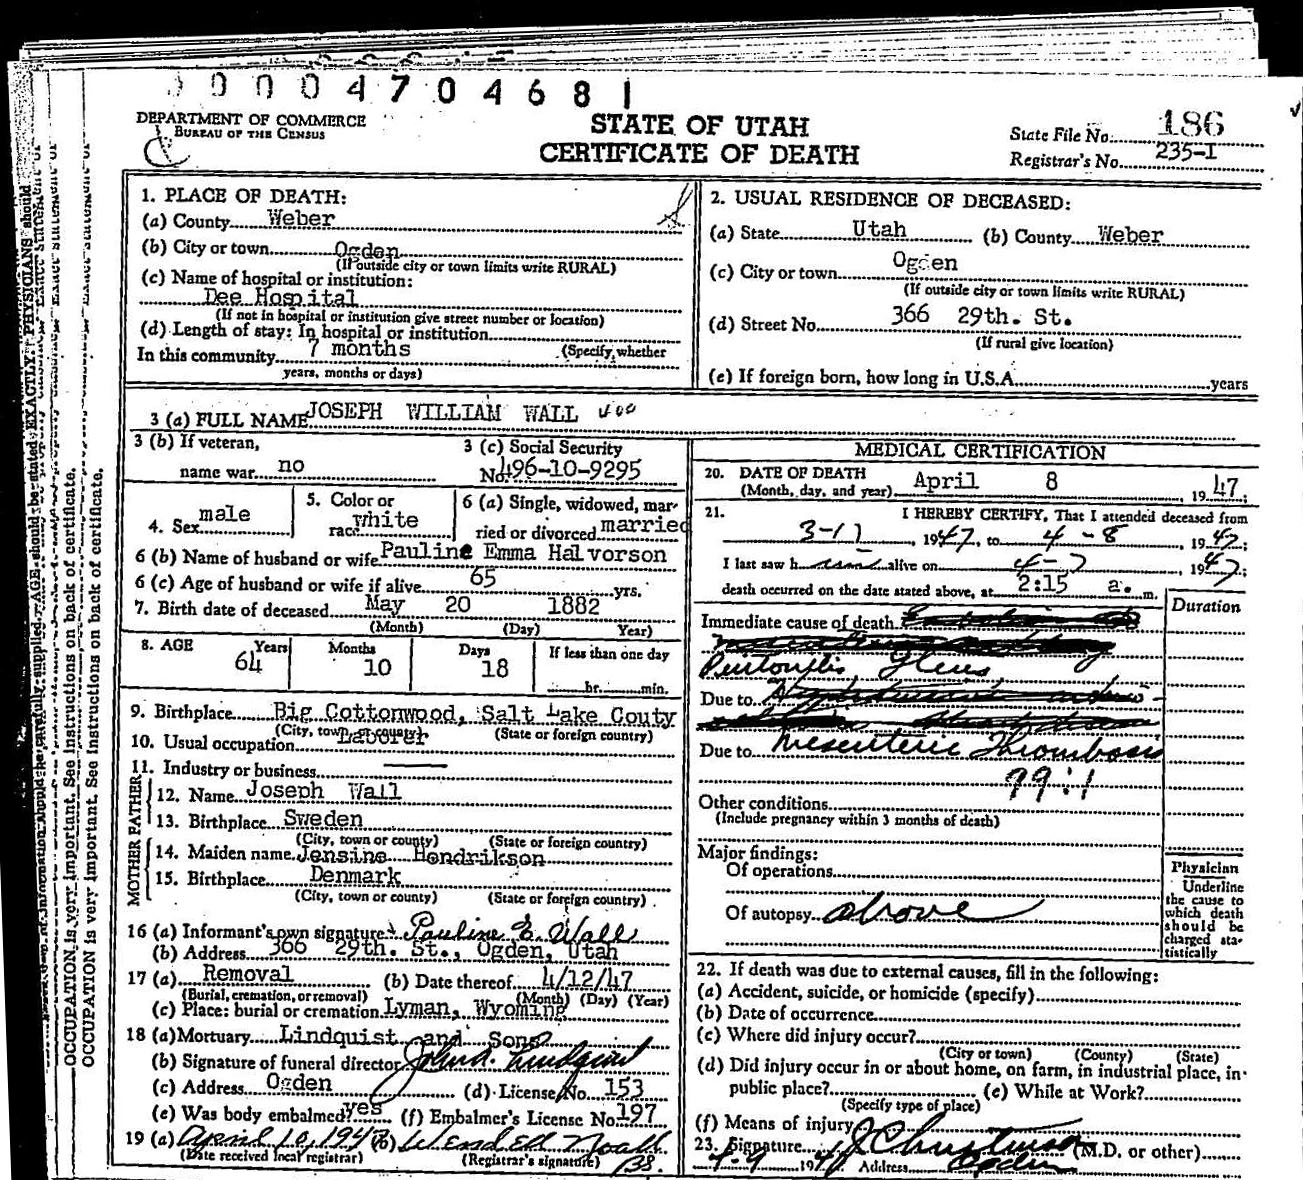 00004704681
DEPARTMENT OF COMMERCE
BUREAU OF THE CENSUS
STATE OF UTAH
CERTIFICATE OF DEATH
State File No. 186
Registrar's No. 235-I
1. PLACE OF DEATH:
(a) County Weber
(b) City or town Ogden
(If outside city or town limits write RURAL)
(c) Name of hospital or institution:
Dee Hospital
(If not in hospital or institution give street number or location)
(d) Length of stay: In hospital or institution
In this community 7 months (Specify whether
years, months or days)
2. USUAL RESIDENCE OF DECEASED:
(a) State Utah (b) County Weber
(c) City or town Ogden
(If outside city or town limits write RURAL)
(d) Street No. 366 29th. St.
(If rural give location)
(e) If foreign born, how long in U.S.A. years
3 (a) FULL NAME JOSEPH WILLIAM WALL
3 (b) If veteran,
name war no
3 (c) Social Security
No. 496-10-9295
4. Sex male
5. Color or
race white
6 (a) Single, widowed, mar-
ried or divorced married
6 (b) Name of husband or wife Pauline Emma Halvorson
6 (c) Age of husband or wife if alive 65 yrs.
7. Birth date of deceased May 20 1882
(Month) (Day) Year)
8. AGE Years Months Days If less than one day
64 10 18 hr. min.
9. Birthplace Big Cottonwood, Salt Lake Couty
(City, town or county) (State or foreign country)
10. Usual occupation Laborer
11. Industry or business
FATHER
12. Name Joseph Wall
13. Birthplace Sweden
(City, town or county) (State or foreign country)
MOTHER
14. Maiden name Jensine Hendrikson
15. Birthplace Denmark
(City, town or county) (State or foreign country)
16 (a) Informant's own signature Pauline E. Wall
(b) Address 366 29th. St., Ogden, Utah
17 (a) Removal (b) Date thereof 4/12/47
(Burial, cremation, or removal) (Month) (Day) (Year)
(c) Place: burial or cremation Lyman, Wyoming
18 (a) Mortuary Lindquist and Sons
(b) Signature of funeral director John A. Lindquist
(c) Address Ogden (d) License No. 153
(e) Was body embalmed? yes (f) Embalmer's License No. 197
19 (a) April 10, 1947 (b) Wendell Noall
(Date received local registrar) (Registrar's signature) BS.
MEDICAL CERTIFICATION
20. DATE OF DEATH
(Month, day, and year) April 8, 1947
21. I HEREBY CERTIFY, That I attended deceased from
3-17, 1947, to 4-8, 1947;
I last saw h im alive on 4-7, 1947;
death occurred on the date stated above, at 2:15 a. m.
Duration
Immediate cause of death
Peritonitis Ileus
Due to
Due to Mesenteric Thrombosis
99:1
Other conditions
(Include pregnancy within 3 months of death)
Major findings:
Of operations
Of autopsy above
Physician
Underline
the cause to
which death
should be
charged sta-
tistically
22. If death was due to external causes, fill in the following:
(a) Accident, suicide, or homicide (specify)
(b) Date of occurrence
(c) Where did injury occur?
(City or town) (County) (State)
(d) Did injury occur in or about home, on farm, in industrial place, in
public place? (e) While at Work?
(Specify type of place)
(f) Means of injury
23. Signature (M.D. or other)
4-9 1947 Address Ogden
OCCUPATION is very important. See instructions on back of certificate.
OCCUPATION is very important. See instructions on back of certificate.